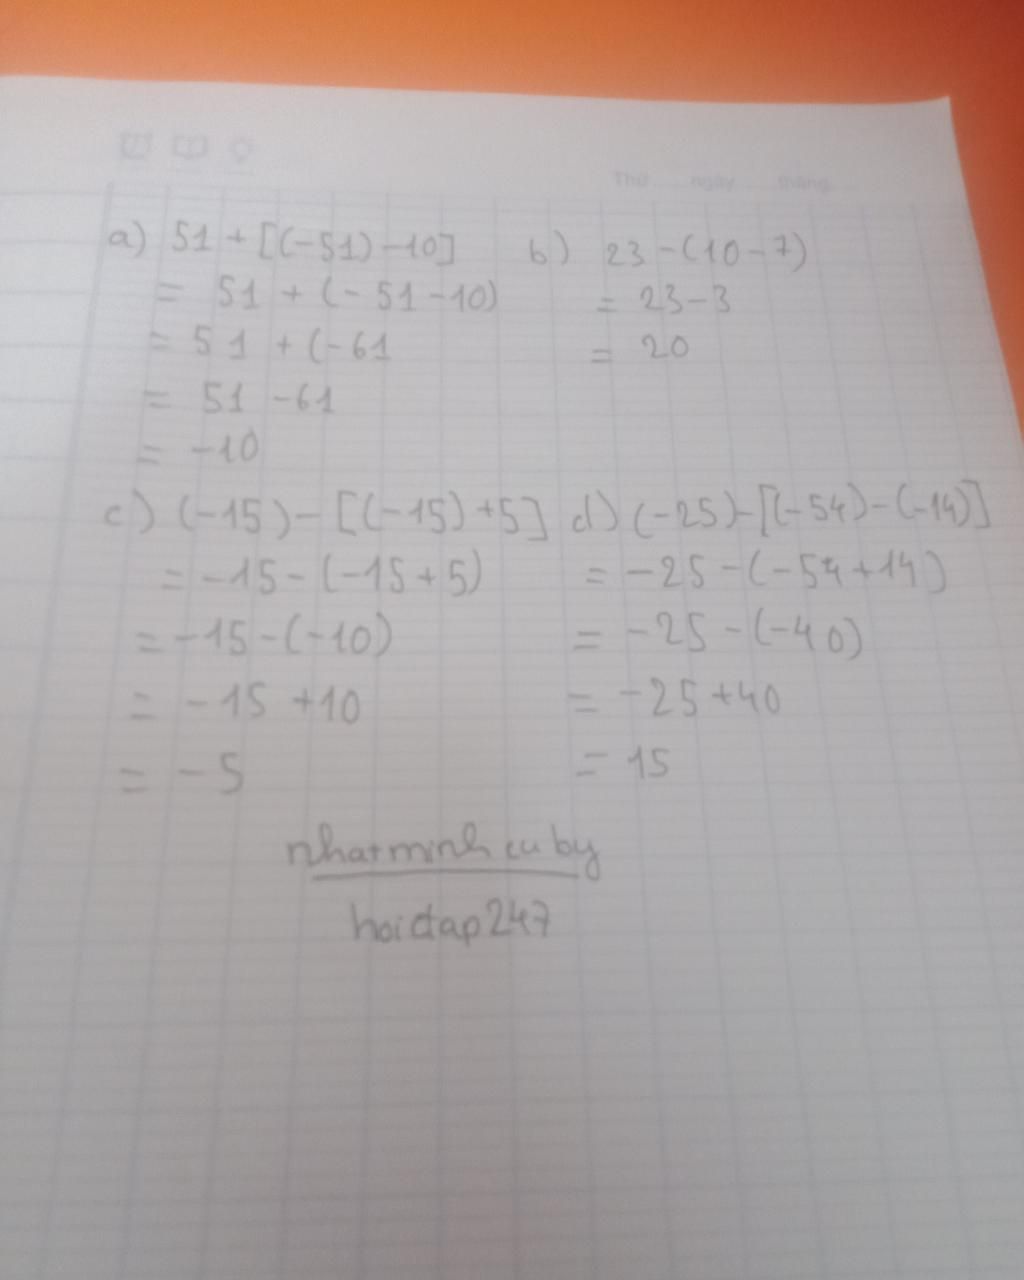 Thứ ngày tháng
a) 51 + [(-51) - 10]
= 51 + (- 51 - 10)
= 51 + (-61
= 51 - 61
= -10
b) 23 - (10 - 7)
= 23 - 3
= 20
c) (-15) - [(-15) + 5]
= -15 - (-15 + 5)
= -15 - (-10)
= -15 + 10
= -5
d) (-25) - [(-54) - (-14)]
= -25 - (-54 + 14)
= -25 - (-40)
= -25 + 40
= 15
nhatminh cu by
hoidap247